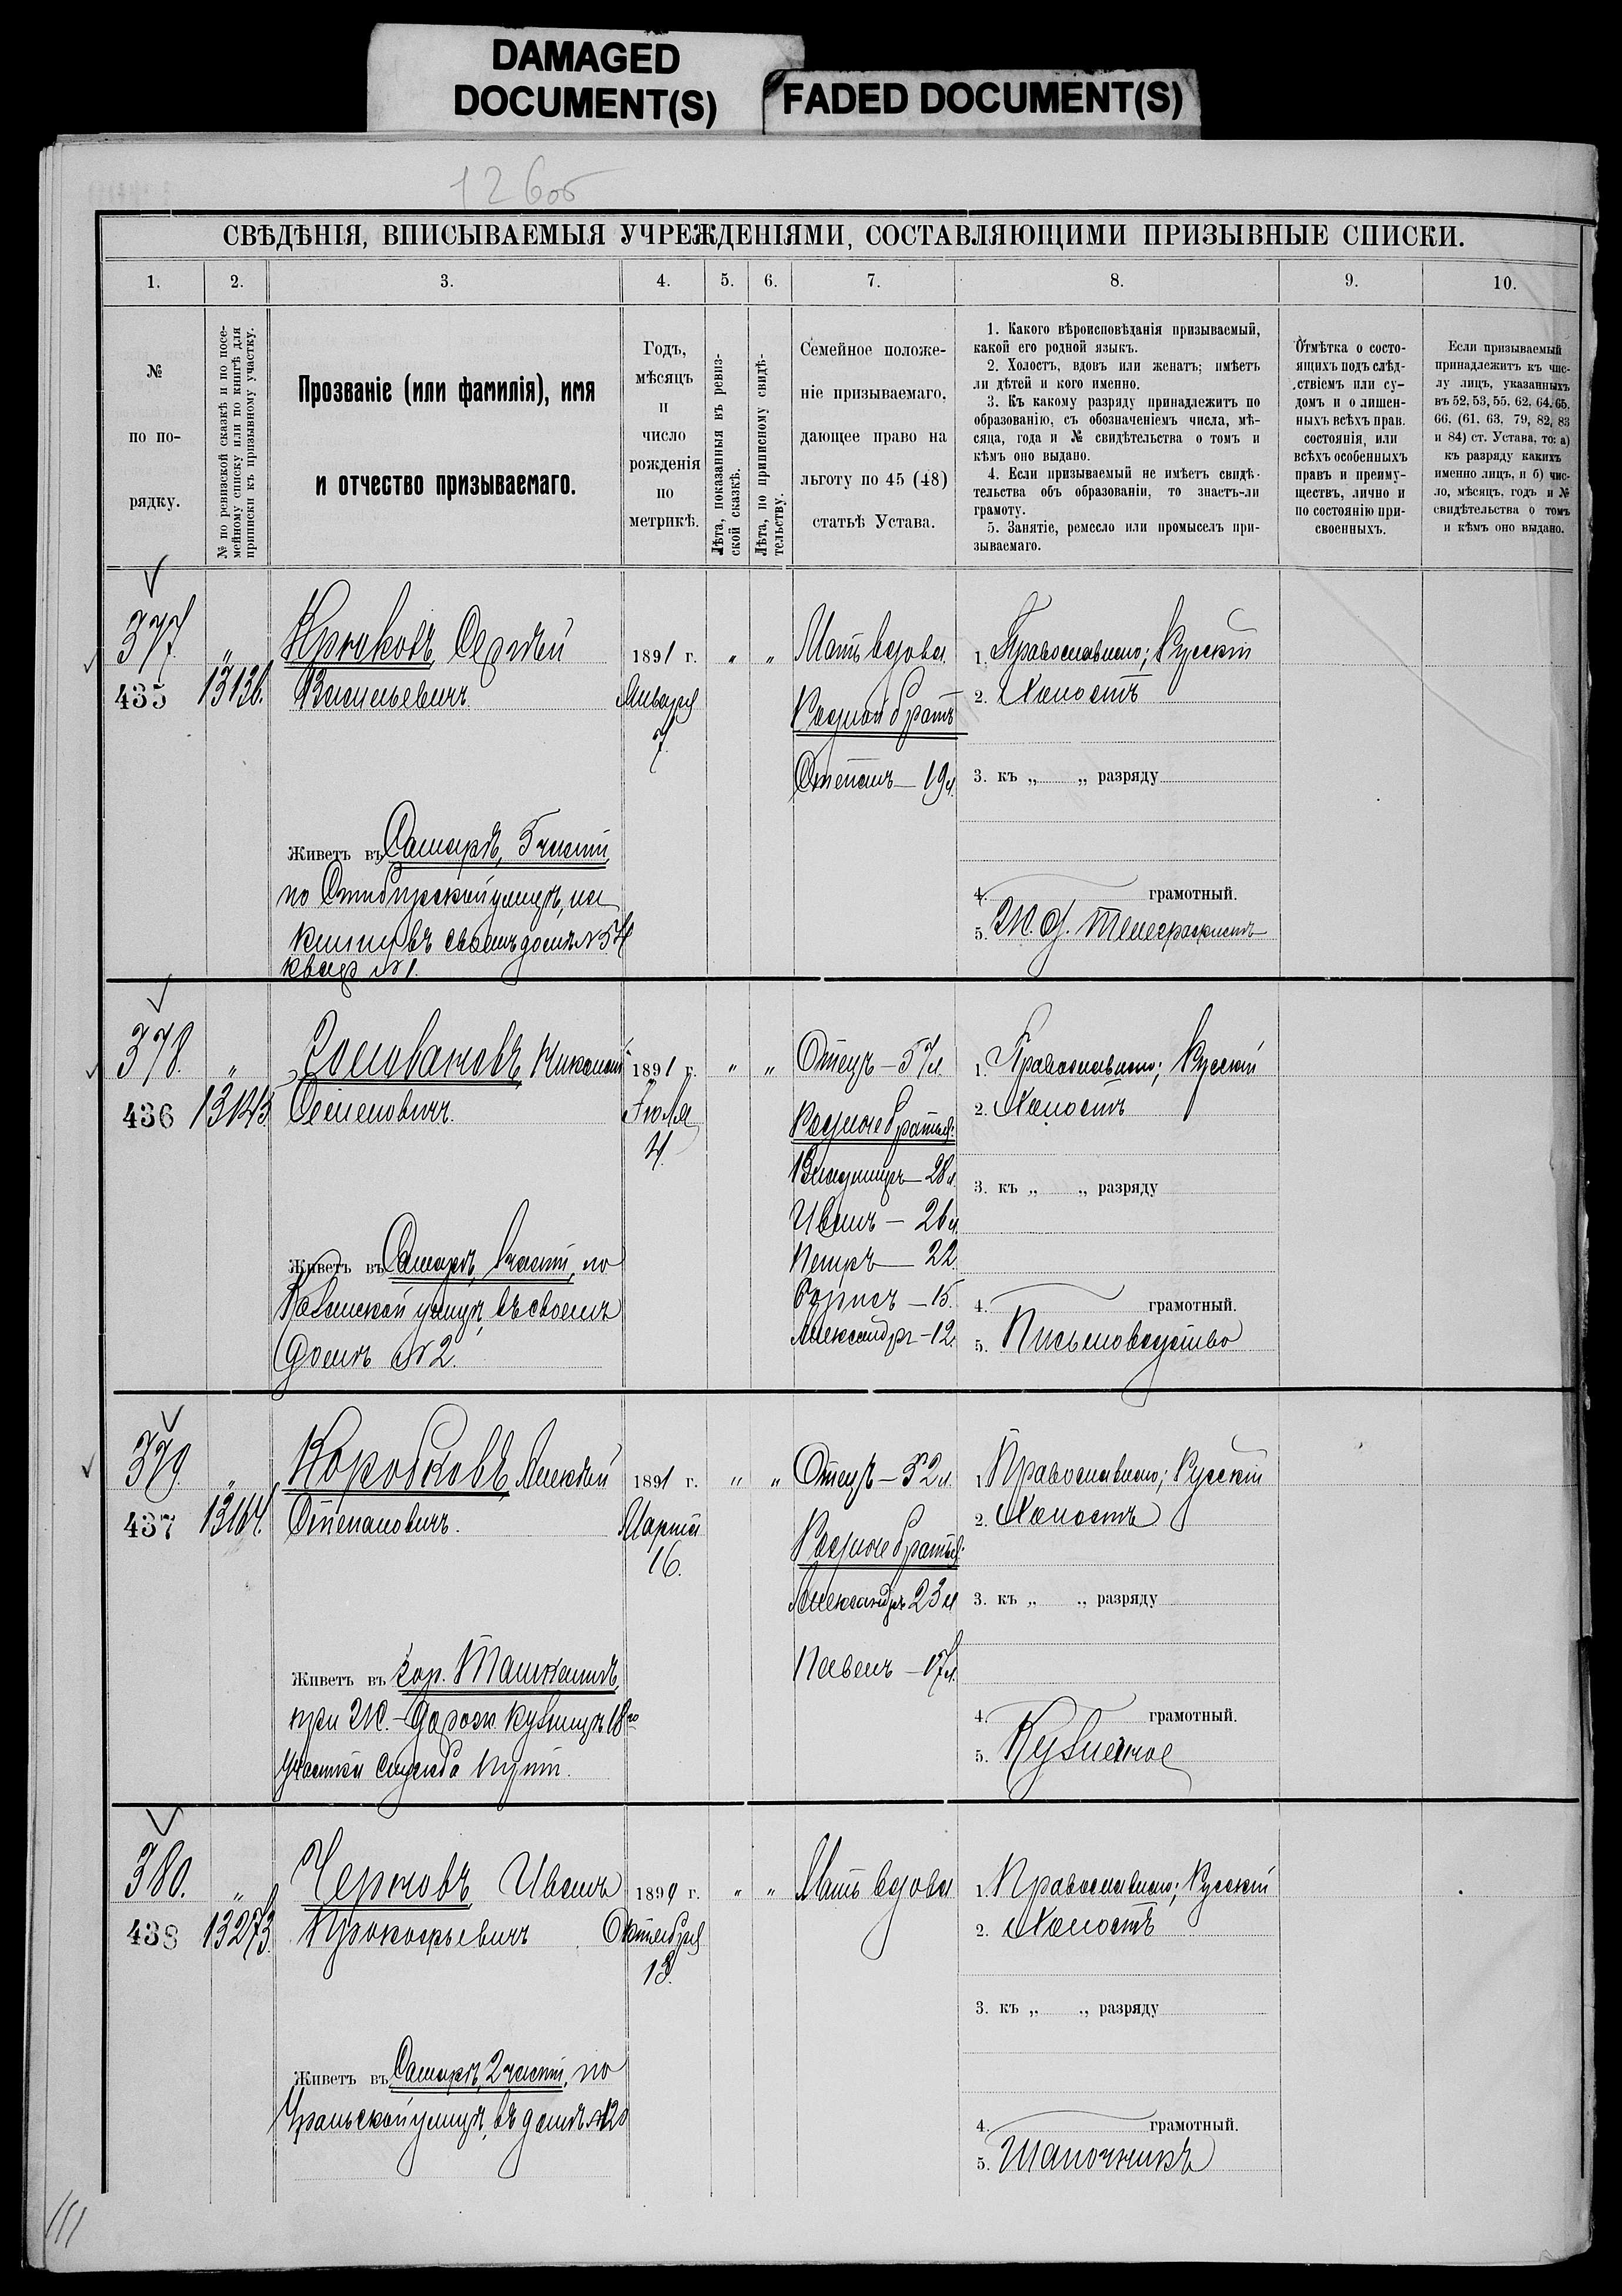 DAMAGED
DOCUMENT(S)
FADED DOCUMENT(S)
12 6об
СВѢДѢНІЯ, ВПИСЫВАЕМЫЯ УЧРЕЖДЕНІЯМИ, СОСТАВЛЯЮЩИМИ ПРИЗЫВНЫЕ СПИСКИ.
1. 2. 3. 4. 5. 6. 7. 8. 9. 10.
№
по по-
рядку.
№ по ревизской сказкѣ и по посе-
мейному списку или по книгѣ для
приписки къ призывному участку.
Прозваніе (или фамилія), имя
и отчество призываемаго.
Годъ,
мѣсяцъ
и
число
рожденія
по
метрикѣ.
Лѣта, показанныя въ ревиз-
ской сказкѣ.
Лѣта, по приписному свидѣ-
тельству.
Семейное положе-
ніе призываемаго,
дающее право на
льготу по 45 (48)
статьѣ Устава.
1. Какого вѣроисповѣданія призываемый,
какой его родной языкъ.
2. Холостъ, вдовъ или женатъ; имѣетъ
ли дѣтей и кого именно.
3. Къ какому разряду принадлежитъ по
образованію, съ обозначеніемъ числа, мѣ-
сяца, года и № свидѣтельства о томъ и
кѣмъ оно выдано.
4. Если призываемый не имѣетъ свидѣ-
тельства объ образованіи, то знаетъ-ли
грамоту.
5. Занятіе, ремесло или промыселъ при-
зываемаго.
Отмѣтка о состо-
ящихъ подъ слѣд-
ствіемъ или су-
домъ и о лишен-
ныхъ всѣхъ прав.
состоянія, или
всѣхъ особенныхъ
правъ и преиму-
ществъ, лично и
по состоянію при-
своенныхъ.
Если призываемый
принадлежитъ къ чис-
лу лицъ, указанныхъ
въ 52, 53, 55, 62, 64, 65,
66, (61, 63, 79, 82, 83
и 84) ст. Устава, то: а)
къ разряду какихъ
именно лицъ, и б) чис-
ло, мѣсяцъ, годъ и №
свидѣтельства о томъ
и кѣмъ оно выдано.
377. „ Крюковъ Сергѣй 1891 г. „ „ Мать вдова 1. Православно; Русскій
435 13136. Васильевичъ Января 2. Холостъ
7. Родной братъ
Степанъ — 19л. 3. къ „ „ разряду
Живетъ въ Самарѣ, 5 части,
по Симбирской улицѣ, 4. грамотный.
въ своемъ домѣ № 5. Ж. д. телеграфистъ
квар № 1.
378. „ Головановъ Николай 1891 г. „ „ Отецъ — 57л. 1. Православно; Русскій
436 13143 Семеновичъ Іюля 2. Холостъ
4. Родные братья:
Владимиръ — 28л. 3. къ „ „ разряду
Иванъ — 26л.
Живетъ въ Самарѣ, части, по Петръ — 22.
Казанской улицѣ, въ своемъ Борисъ — 15. 4. грамотный.
домѣ № 2. Александръ — 12. 5. Письмоводство
379. „ Коробковъ Алексѣй 1891 г. „ „ Отецъ — 52л. 1. Православно; Русскій
437 13164. Степановичъ. Марта 2. Холостъ
16. Родные братья:
Александръ 23л 3. къ „ „ разряду
Живетъ въ гор. Ташкентѣ, Павелъ — 17л.
при Ж.-Дорож. кузницѣ 18го 4. грамотный.
участка служба пути. 5. Кузнечное
380. „ Черновъ Иванъ 1890 г. „ „ Мать вдова 1. Православно; Русскій
438 13273. Прокофьевичъ Октября 2. Холостъ
13.
3. къ „ „ разряду
Живетъ въ Самарѣ, 2 части, по
Уральской улицѣ, въ домѣ № 120 4. грамотный.
5. Шапочникъ